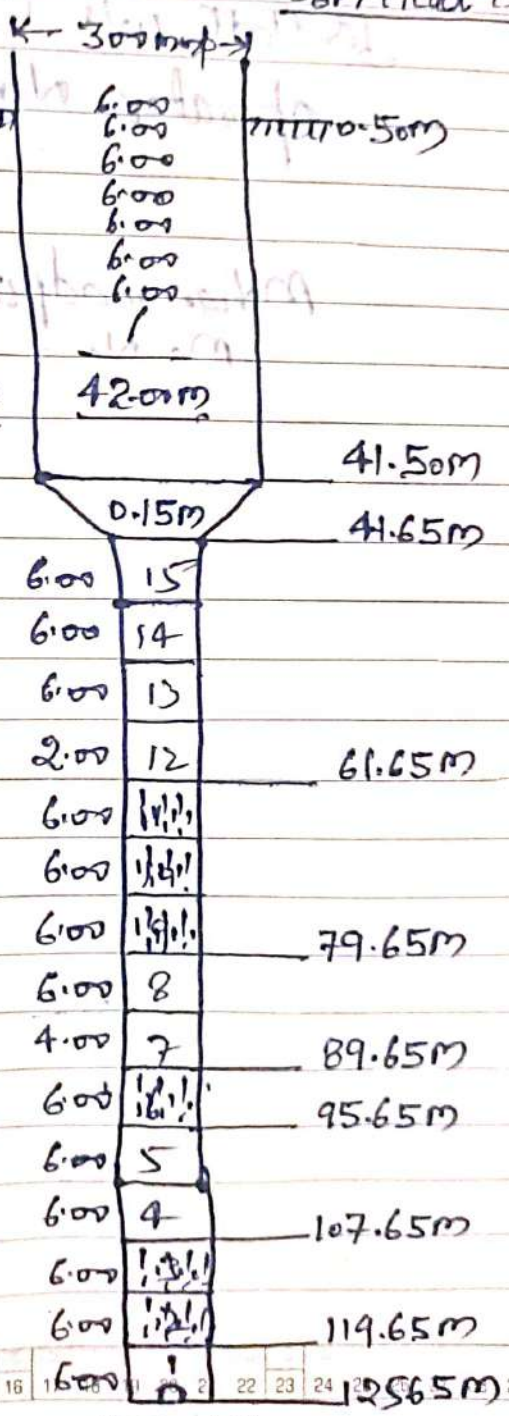 300mmφ
6.00
6.00 0.50m
6.00
6.00
6.00
6.00
6.00
42.00m
41.50m
0.15m
41.65m
6.00 15
6.00 14
6.00 13
2.00 12 61.65m
6.00
6.00
6.00 79.65m
6.00 8
4.00 7 89.65m
6.00 95.65m
6.00 5
6.00 4 107.65m
6.00
6.00 119.65m
6.00 125.65m
16 22 23 24